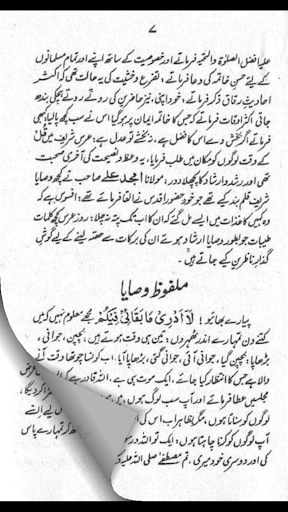 ۷
علیہا افضل الصلوٰۃ والتحیۃ فرماتے اور خصوصیت کے ساتھ اپنے اور تمام مسلمانوں
کے لیے حسن خاتمہ کی دعا فرماتے؛ تضرع وخشیت کی یہ حالت تھی کہ اکثر
احادیث رقاق ذکر فرماتے؛ خود اپنی، نیز حاضرین کی روتے روتے ہچکی بندھ
جاتی؛ اکثر اوقات فرماتے کہ جس کا خاتمہ ایمان پر ہو گیا اس نے سب کچھ پالیا؛ کبھی
فرماتے اگر بخش دے اس کا فضل ہے، نہ بخشے تو عدل ہے؛ عرس شریف میں قل
کے وقت لوگوں کو مکان میں طلب فرمایا، یہ وعظ و نصیحت کی آخری صحبت
تھی اور رشد و ارشاد کا پچھلا دور؛ مولانا امجد علی صاحب نے کچھ وصایا
شریف قلم بند کیے تھے جو خود حضور اقدس نے القا فرمائے تھے؛ افسوس ہے کہ
وہ کہیں کاغذات میں ایسے مل گئے کہ ان کا اب تک پتہ نہ چلا؛ روز عرس کچھ کلمات
طیبات جو بطور وصایا ارشاد ہوئے ان کی برکات سے حصّہ لینے کے لیے گوش
گذار ناظرین کیے جاتے ہیں۔
ملفوظ وصایا
پیارے بھائیو! لَا اَدْرِیْ مَا بَقَائِیْ فِیْکُمْ مجھے معلوم نہیں کہ میں
کتنے دن تمہارے اندر ٹھہروں، تین ہی وقت ہوتے ہیں، بچپن، جوانی،
بڑھاپا؛ بچپن گیا، جوانی آئی، جوانی گئی، بڑھاپا آیا۔ اب کونسا چوتھا وقت آنے
والا ہے جس کا انتظار کیا جائے، ایک موت ہی ہے۔ اللہ قادر ہے کہ
مجلسیں عطا فرمائے اور آپ سب لوگ ہوں، میں
لوگوں کو سناتا ہوں، مگر بظاہر اب اس کی
آپ لوگوں کو کہنا چاہتا ہوں: ایک تو اللہ
کی اور دوسری خود میری۔ تم مصطفیٰ صلی اللہ علیہ